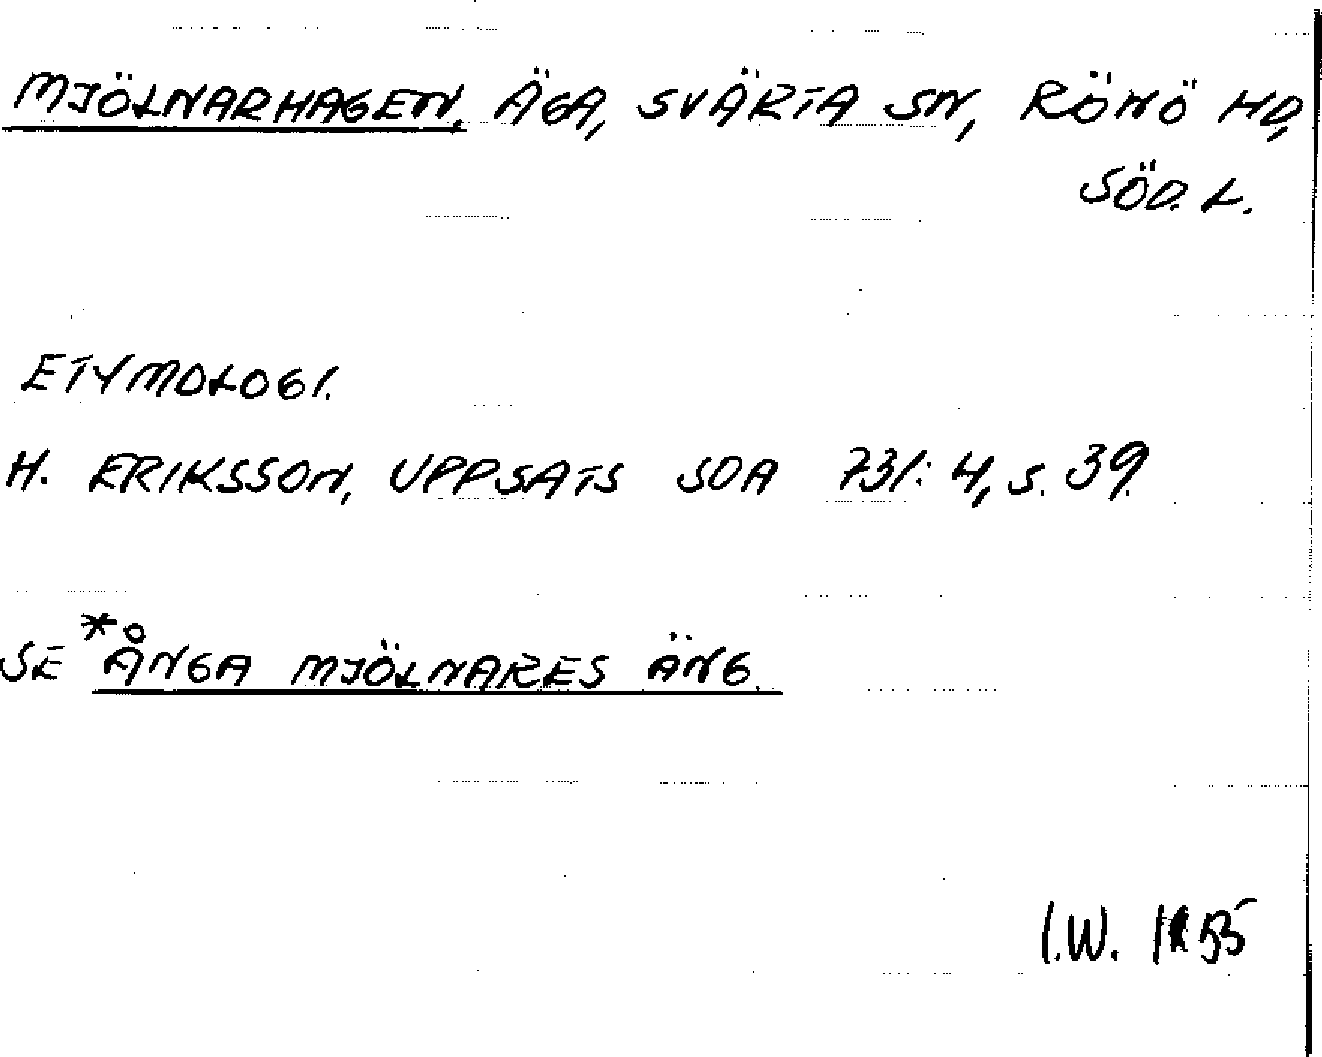 MJÖLNARHAGEN, ÄGA, SVÄRTA SN, RÖNÖ HD,
SÖD. L.
ETYMOLOGI.
H. ERIKSSON, UPPSATS SOA 731: 4, S. 39.
SE *ÅNGA MJÖLNARES ÄNG.
I.W.